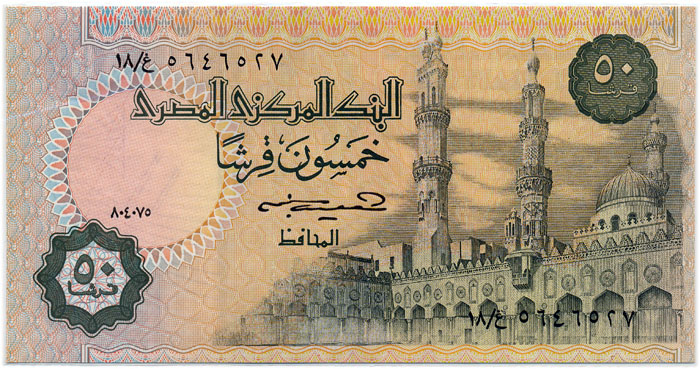 ١٨/غ ٥٦٤٦٥٢٧
٥٠
قرشا
البنك المركزى المصرى
خمسون قرشًا
المحافظ
٨٠٤٠٧٥
٥٠
قرشا
١٨/غ ٥٦٤٦٥٢٧